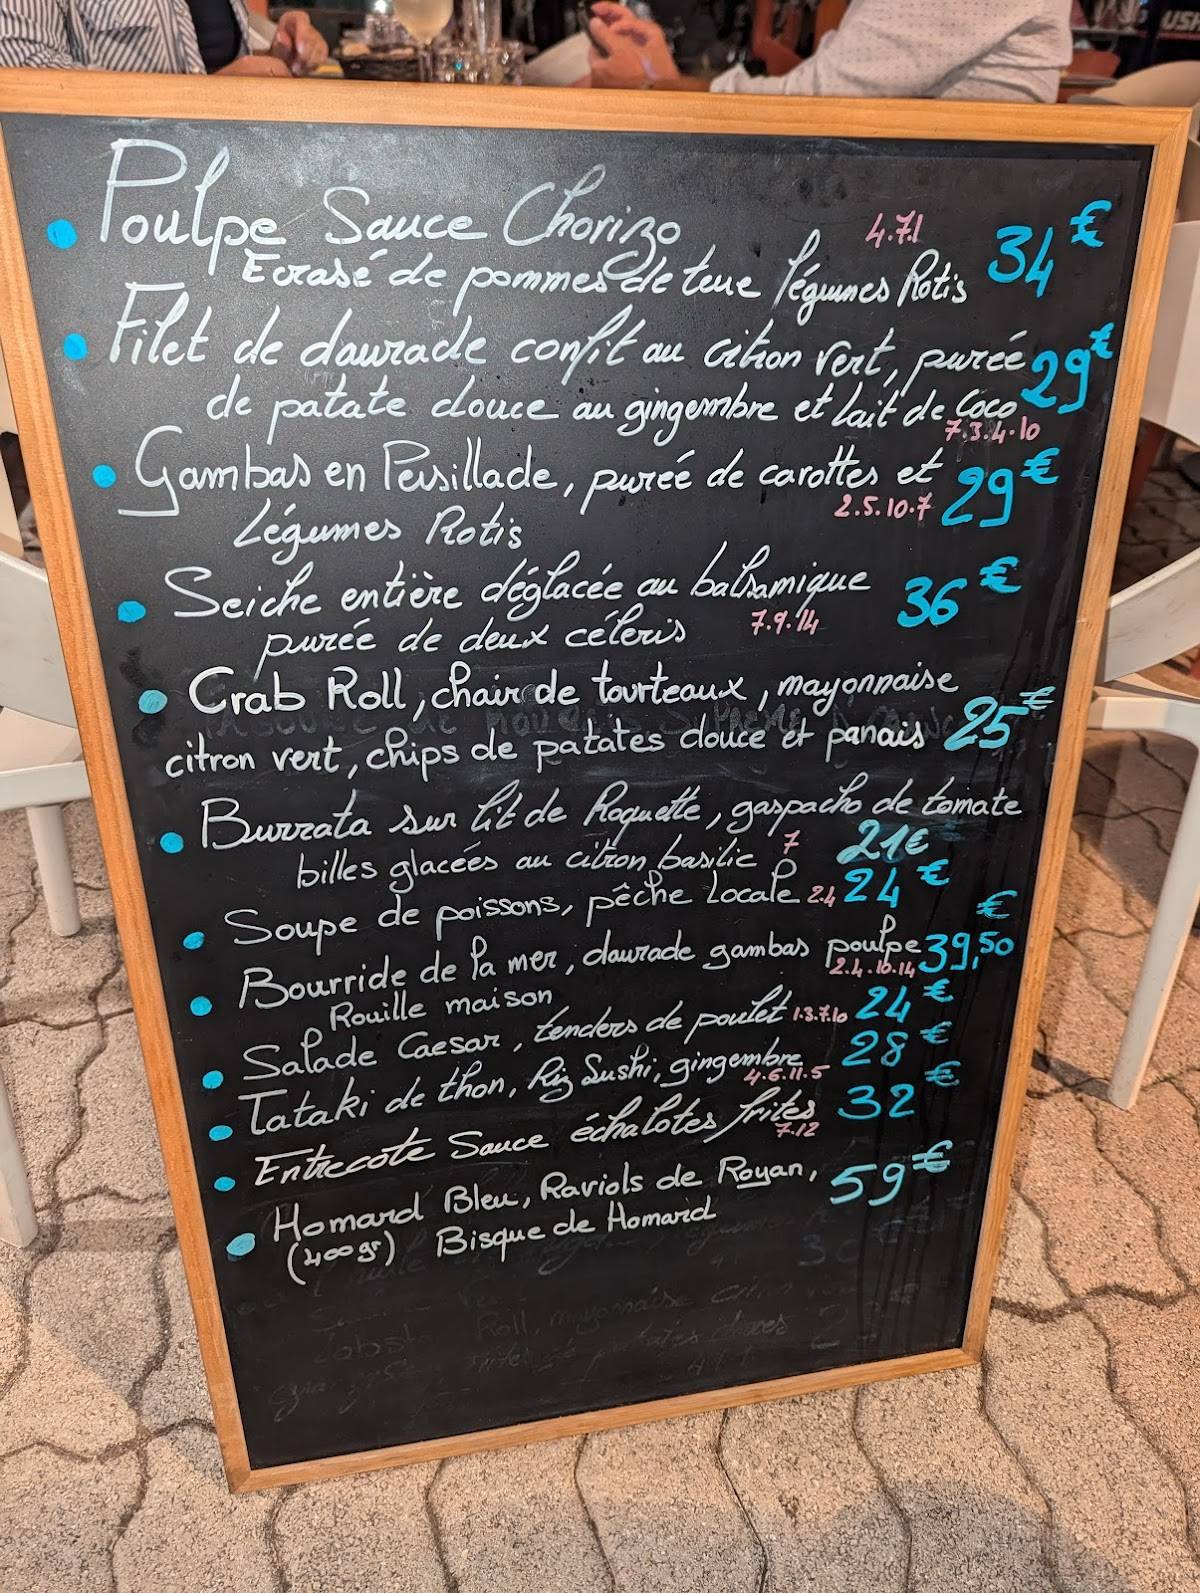 Poulpe Sauce Chorizo 4.7.1 34€
Ecrasé de pommes de terre légumes Rotis
Filet de daurade confit au citron vert, purée 29€
de patate douce au gingembre et lait de Coco
7.3.4.10
Gambas en Persillade, purée de carottes et 29€
Légumes Rotis 2.5.10.7
Seiche entière déglacée au balsamique 36€
purée de deux céleris 7.9.14
Crab Roll, chair de tourteaux, mayonnaise
citron vert, chips de patates douce et panais 25€
Burrata sur lit de Roquette, gaspacho de tomate
billes glacées au citron basilic 7 21€
Soupe de poissons, pêche Locale 2.4 24€
Bourride de la mer, daurade gambas poulpe 39,50€
Rouille maison 2.4.10.14
Salade Caesar, tenders de poulet 1.3.7.10 24€
Tataki de thon, Riz Sushi, gingembre 28€
4.6.11.5
Entrecote Sauce échalotes frites 32€
7.12
Homard Bleu, Raviols de Royan, 59€
(400gr) Bisque de Homard